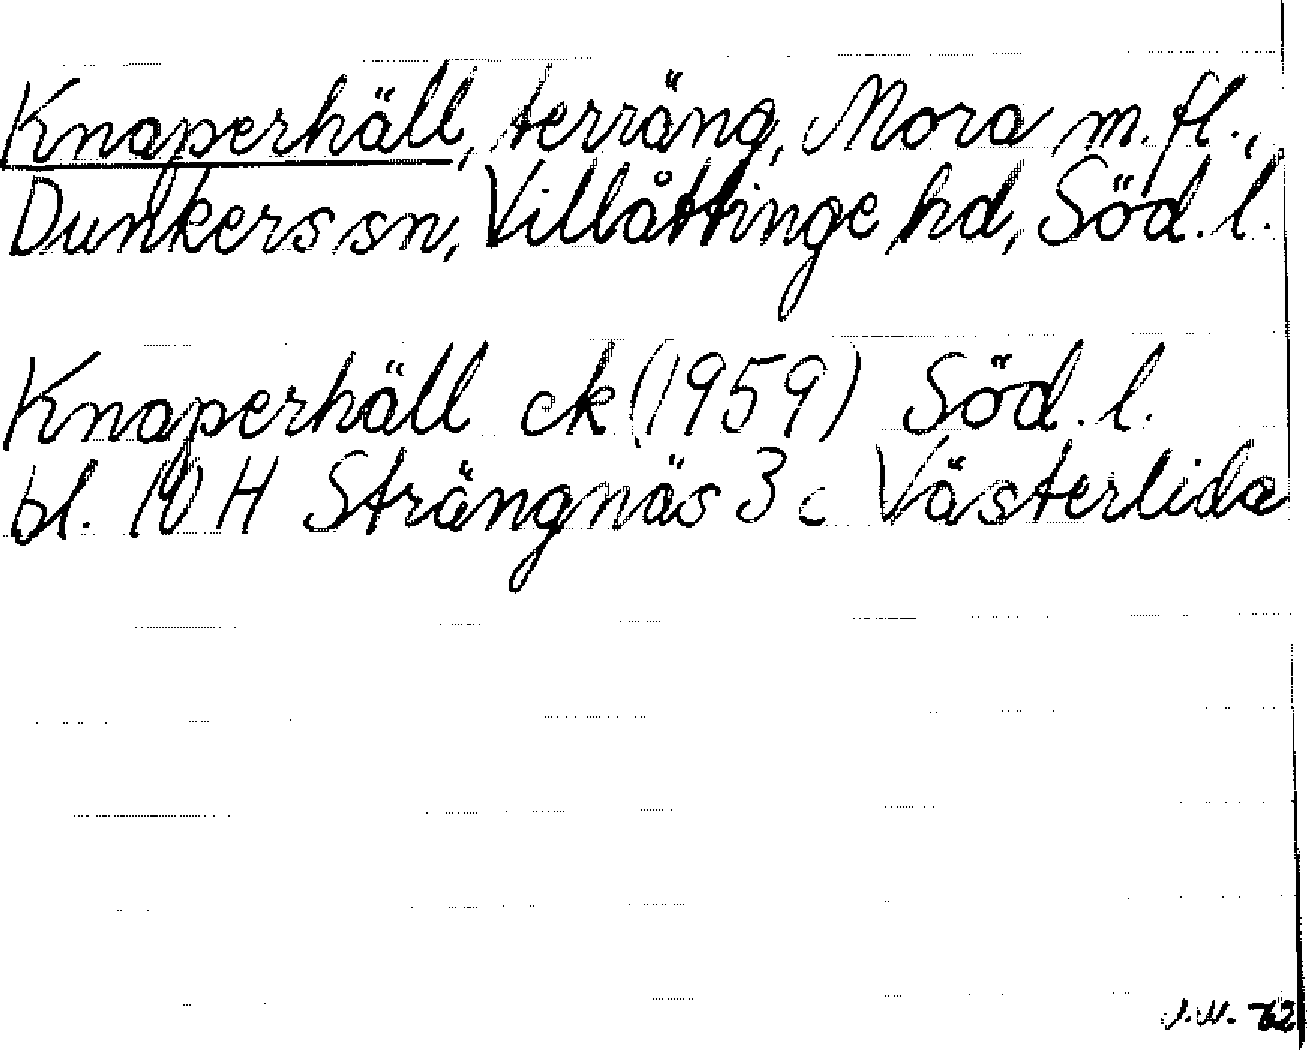 Knaperhäll, terräng, Mora m.fl.,
Dunkers sn, Villåttinge hd, Söd. l.
Knaperhäll ek (1959) Söd. l.
bl. 10 H Strängnäs 3 c Västerlida
J.W. -62